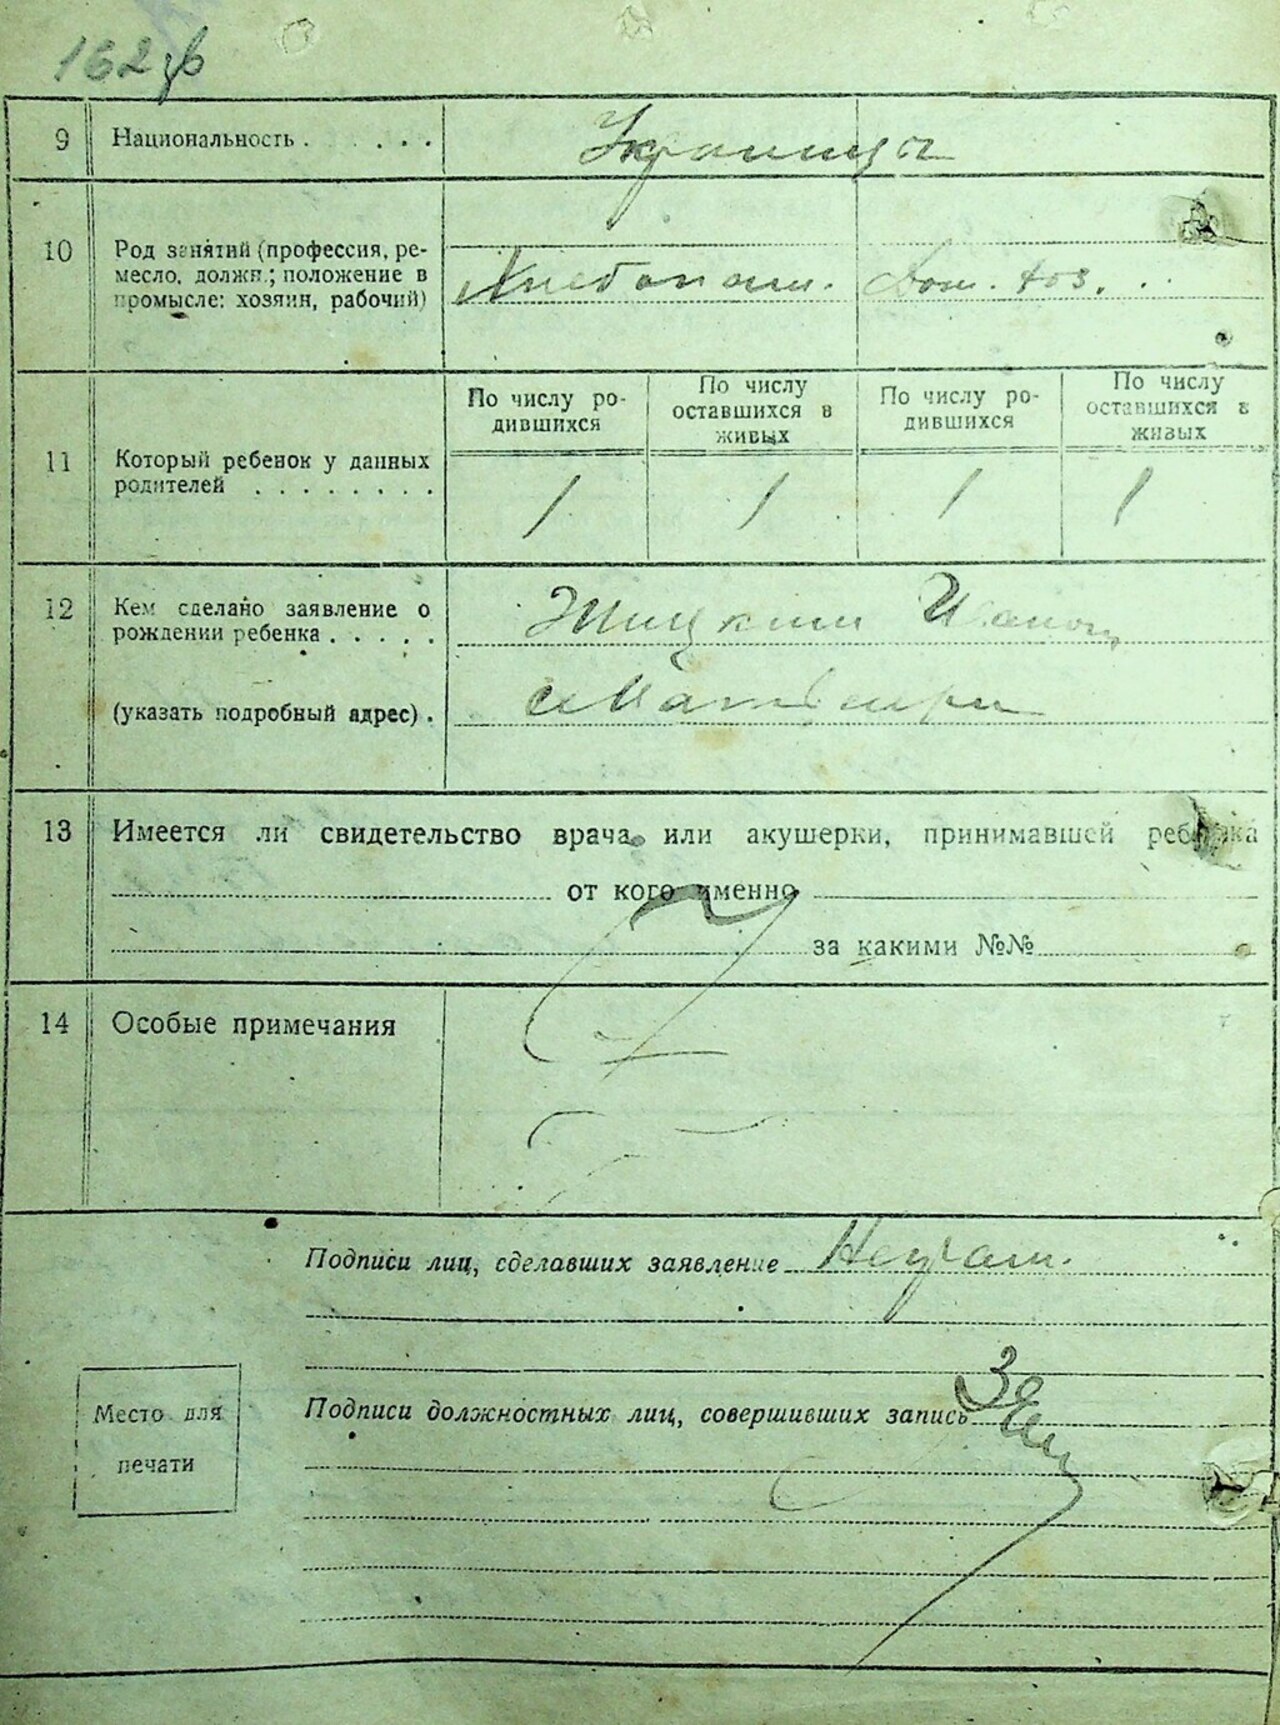 162 зв
9 Национальность . . . . . . Украинцы
10 Род занятий (профессия, ре-
месло, должн.; положение в Хлебопаш. Дом. хоз.
промысле: хозяин, рабочий)
По числу ро-
дившихся
По числу
оставшихся в
живых
По числу ро-
дившихся
По числу
оставшихся в
живых
11 Который ребенок у данных
родителей . . . . . . . . 1 1 1 1
12 Кем сделано заявление о
рождении ребенка . . . . .
(указать подробный адрес) .
13 Имеется ли свидетельство врача или акушерки, принимавшей ребенка
от кого именно
за какими №№
14 Особые примечания
Подписи лиц, сделавших заявление Неграм.
Подписи должностных лиц, совершивших запись
Место для
печати